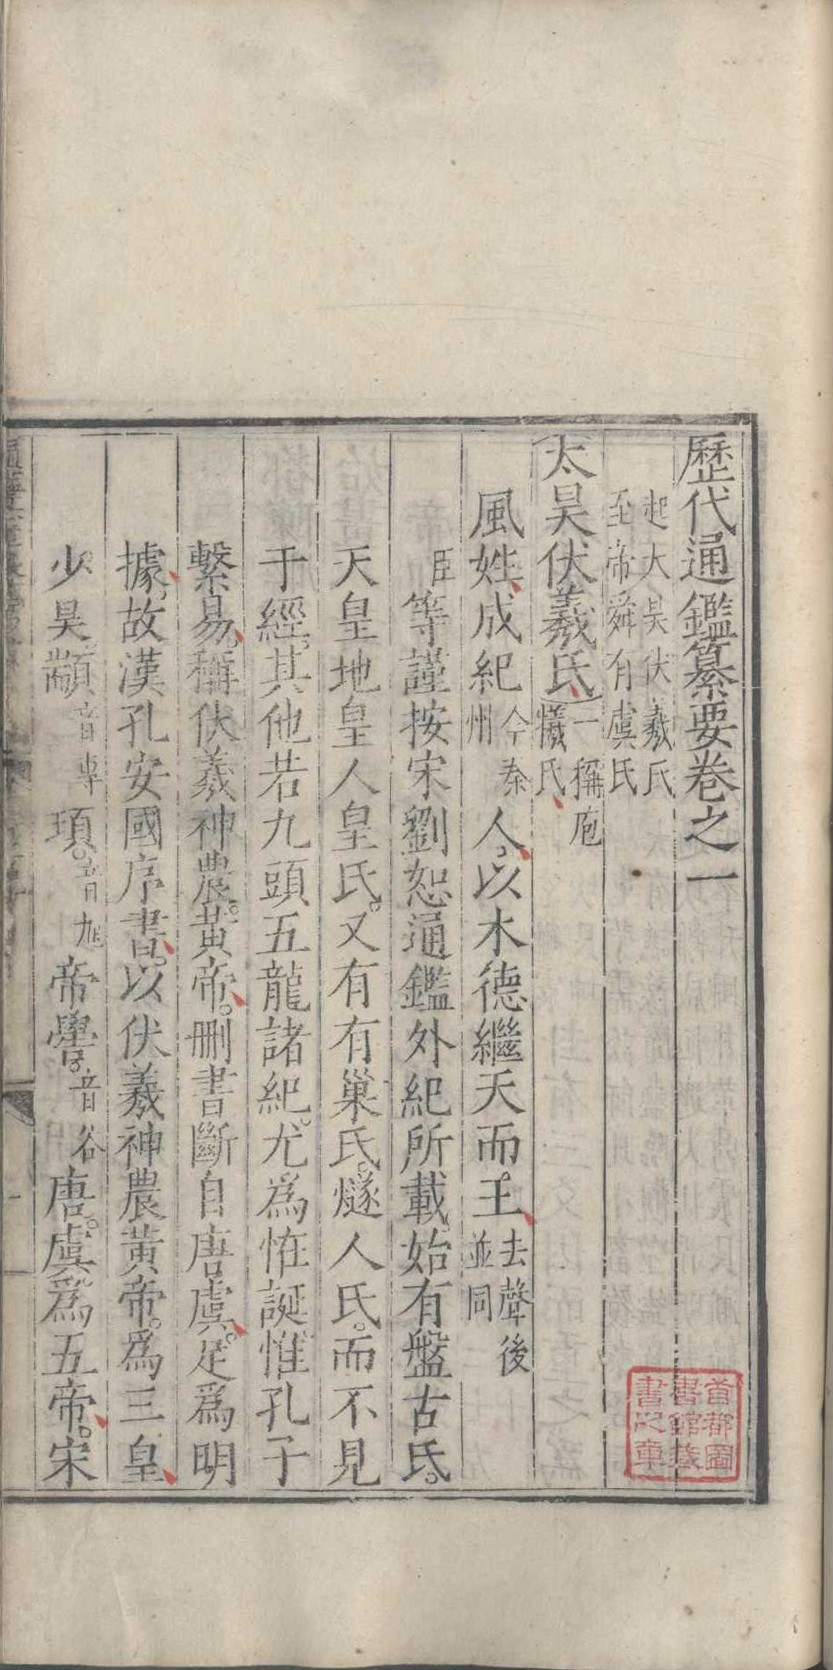 歷代通鑑纂要卷之一
起太昊伏羲氏
至帝舜有虞氏
太昊伏羲氏一稱庖犧氏
風姓成紀今秦州人以木德繼天而王去聲後並同
臣等謹按宋劉恕通鑑外紀所載始有盤古氏
天皇地皇人皇氏又有有巢氏燧人氏而不見
于經其他若九頭五龍諸紀尤為恠誕惟孔子
繫易稱伏羲神農黃帝刪書斷自唐虞足爲明
據故漢孔安國序書以伏羲神農黃帝爲三皇
少昊顓音專頊音旭帝嚳音谷唐虞爲五帝宋
首都圖
書館藏
書之章